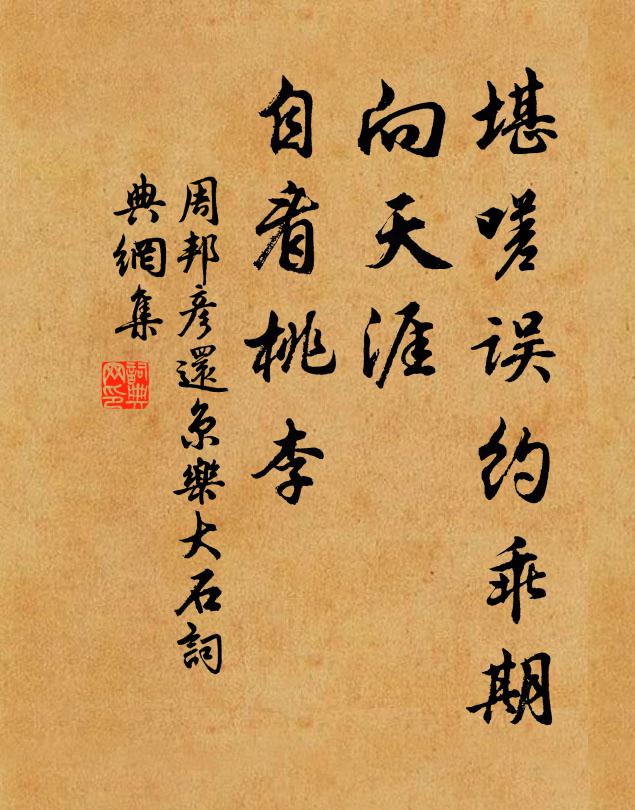 堪嗟误约乖期
向天涯
自看桃李
周邦彦還京樂大石詞
典網集
詞典
网印